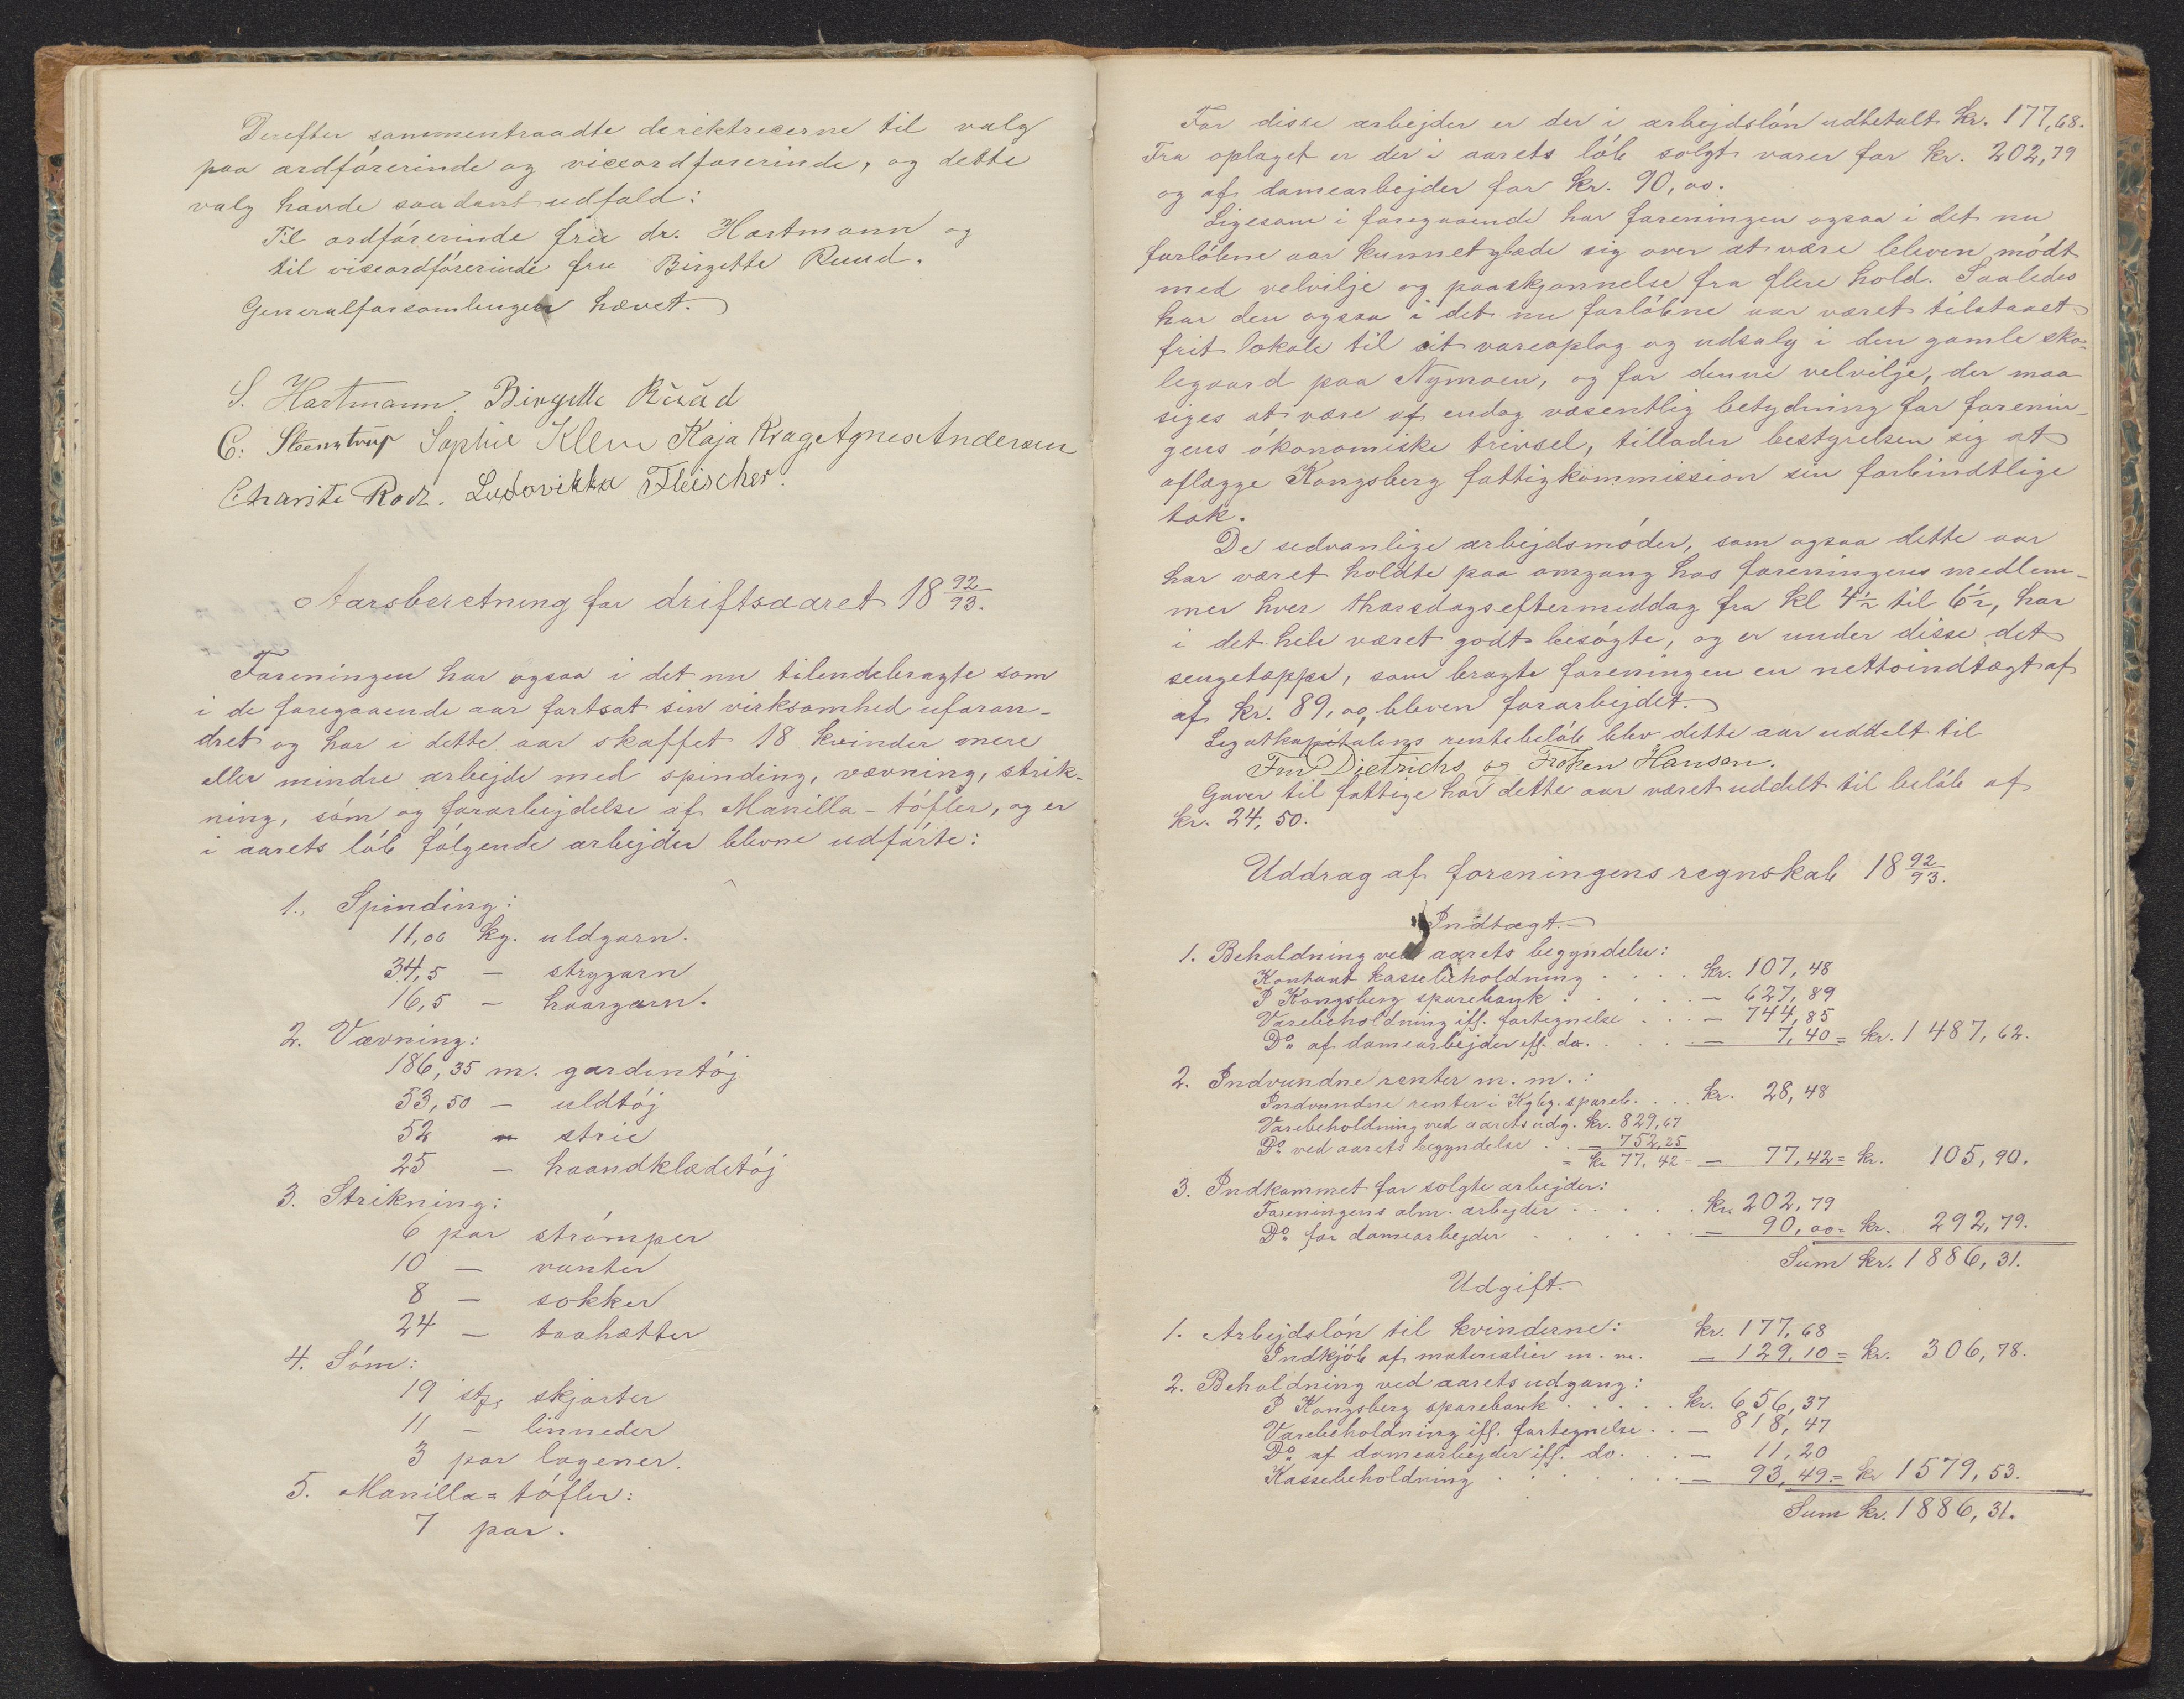 Derefter sammentraadte direktricerne til valg
paa ordförerinde og viceordförerinde, og dette
valg havde saadant udfald:
Til ordförerinde frue dr. Hartmann og
til viceordförerinde fru Birgitte Ruud.
Generalforsamlingen hævet.
S. Hartmann. Birgitte Ruud
C. Steenstrup Sophie Klem Kaja Krag, Agnes Andersen
Charite Rodz. Ludovikka Fleischer.
Aarsberetning for driftsaaret 18 92/93.
Foreningen har ogsaa i det nu tilendebragte som
i de foregaaende aar fortsat sin virksomhed uforan-
dret og har i dette aar skaffet 18 kvinder mere
eller mindre arbejde med spinding, vævning, strik-
ning, söm og forarbejdelse af Manilla-töfler, og er
i aarets löb fölgende arbejder blevne udförte:
1. Spinding:
11,00 kg. uldgarn.
34,5 – strygarn
16,5 – haargarn.
2. Vævning:
186,35 m. gardintöj
53,50 – uldtöj
52 – strie
25 – haandklædetöj
3. Strikning:
6 par strömper
10 – vanter
8 – sokker
24 – taahætter
4. Söm:
19 stk. skjorter
11 – linneder
3 par lagener.
5. Manilla-töfler:
7 par.
For disse arbejder er der i arbejdslön udbetalt kr. 177,68.
Fra oplaget er der i aarets löb solgt varer for kr. 202,79
og af damearbejder for kr. 90,00.
Ligesom i foregaaende har foreningen ogsaa i det nu
forlöbne aar kunnet glæde sig over at være bleven mödt
med velvilje og paaskjønnelse fra flere hold. Saaledes
har den ogsaa i det nu forlöbne aar været tilstaaet
frit lokale til sit vareoplag og udsalg i den gamle sko-
legaard paa Nymoen, og for denne velvilje, der maa
siges at være af endog væsentlig betydning for forenin-
gens ökonomiske trivsel, tillader bestyrelsen sig at
aflægge Kongsberg fattigkommission sin forbindtlige
tak.
De sedvanlige arbejdsmöder, som ogsaa dette aar
har været holdte paa omgang hos foreningens medlem-
mer hver thorsdagseftermiddag fra kl 4½ til 6½, har
i det hele været godt besögte, og er under disse det
sengetæppe, som bragte foreningen en nettoindtægt af
af kr. 89,00, bleven forarbejdet.
Legatkapitalens rentebelöb blev dette aar uddelt til
Fru Dietrichs og Frøken Hansen.
Gaver til fattige har dette aar været uddelt til belöb af
kr. 24,50.
Uddrag af foreningens regnskab 18 92/93.
Indtægt.
1. Beholdning ved aarets begyndelse:
Kontant kassebeholdning . . . . kr. 107,48
I Kongsberg sparebank . . . . . – 627,89
Varebeholdning iflg. fortegnelse . . . – 744,85
Do. af damearbejder iflg. do. . . . . – 7,40 = kr. 1487,62.
2. Indvundne renter m. m.:
Indvundne renter i Kgbg. spareb. . . . kr. 28,48
Varebeholdning ved aarets udg. kr. 829,67
Do. ved aarets begyndelse . . – 752,25
= kr 77,42 – – 77,42 = kr. 105,90.
3. Indkommet for solgte arbejder:
Foreningens alm. arbejder . . . . . kr. 202,79
Do. for damearbejder . . . . . – 90,00 = kr. 292,79.
Sum kr. 1886,31.
Udgift.
1. Arbejdslön til kvinderne: kr. 177,68
Indkjöb af materialier m. m. – 129,10 = kr. 306,78.
2. Beholdning ved aarets udgang:
I Kongsberg sparebank . . . . . kr. 656,37
Varebeholdning iflg. fortegnelse . . – 818,47
Do. af damearbejder iflg. do. . . – 11,20
Kassebeholdning . . . . . . – 93,49 = kr 1579,53.
Sum kr. 1886,31.